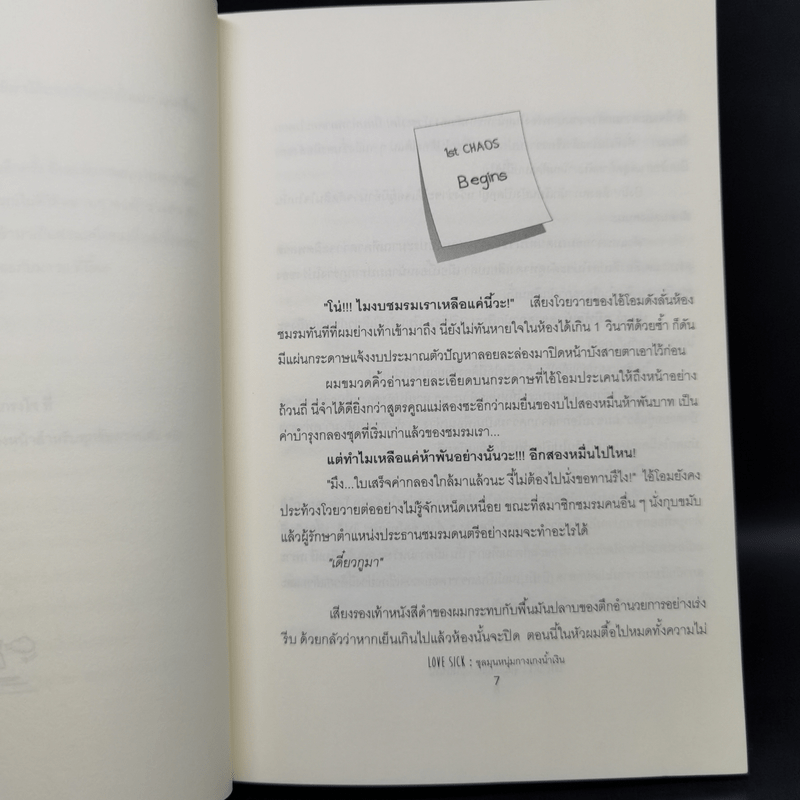 1st CHAOS
Begins
"โน่!!! ไมงบชมรมเราเหลือแค่นี้วะ!" เสียงโวยวายของไอ้โอมดังลั่นห้อง
ชมรมทันทีที่ผมย่างเท้าเข้ามาถึง นี่ยังไม่ทันหายใจในห้องได้เกิน 1 วินาทีด้วยซ้ำ ก็ดัน
มีแผ่นกระดาษแจ้งงบประมาณตัวปัญหาลอยละล่องมาปิดหน้าบังสายตาเอาไว้ก่อน
ผมขมวดคิ้วอ่านรายละเอียดบนกระดาษที่ไอ้โอมประเคนให้ถึงหน้าอย่าง
ถ้วนถี่ นี่จำได้ดียิ่งกว่าสูตรคูณแม่สองซะอีกว่าผมยื่นของบไปสองหมื่นห้าพันบาท เป็น
ค่าบำรุงกลองชุดที่เริ่มเก่าแล้วของชมรมเรา...
แต่ทำไมเหลือแค่ห้าพันอย่างนั้นวะ!!! อีกสองหมื่นไปไหน!
"มึง...ใบเสร็จค่ากลองใกล้มาแล้วนะ งี้ไม่ต้องไปนั่งขอทานรึไง!" ไอ้โอมยังคง
ประท้วงโวยวายต่ออย่างไม่รู้จักเหน็ดเหนื่อย ขณะที่สมาชิกชมรมคนอื่น ๆ นั่งกุบขมับ
แล้วผู้รักษาตำแหน่งประธานชมรมดนตรีอย่างผมจะทำอะไรได้
"เดี๋ยวกูมา"
เสียงรองเท้าหนังสีดำของผมกระทบกับพื้นมันปลาบของตึกอำนวยการอย่างเร่ง
รีบ ด้วยกลัวว่าหากเย็นเกินไปแล้วห้องนั้นจะปิด ตอนนี้ในหัวผมตื้อไปหมดทั้งความไม่
LOVE SICK : ชุลมุนหนุ่มกางเกงน้ำเงิน
7